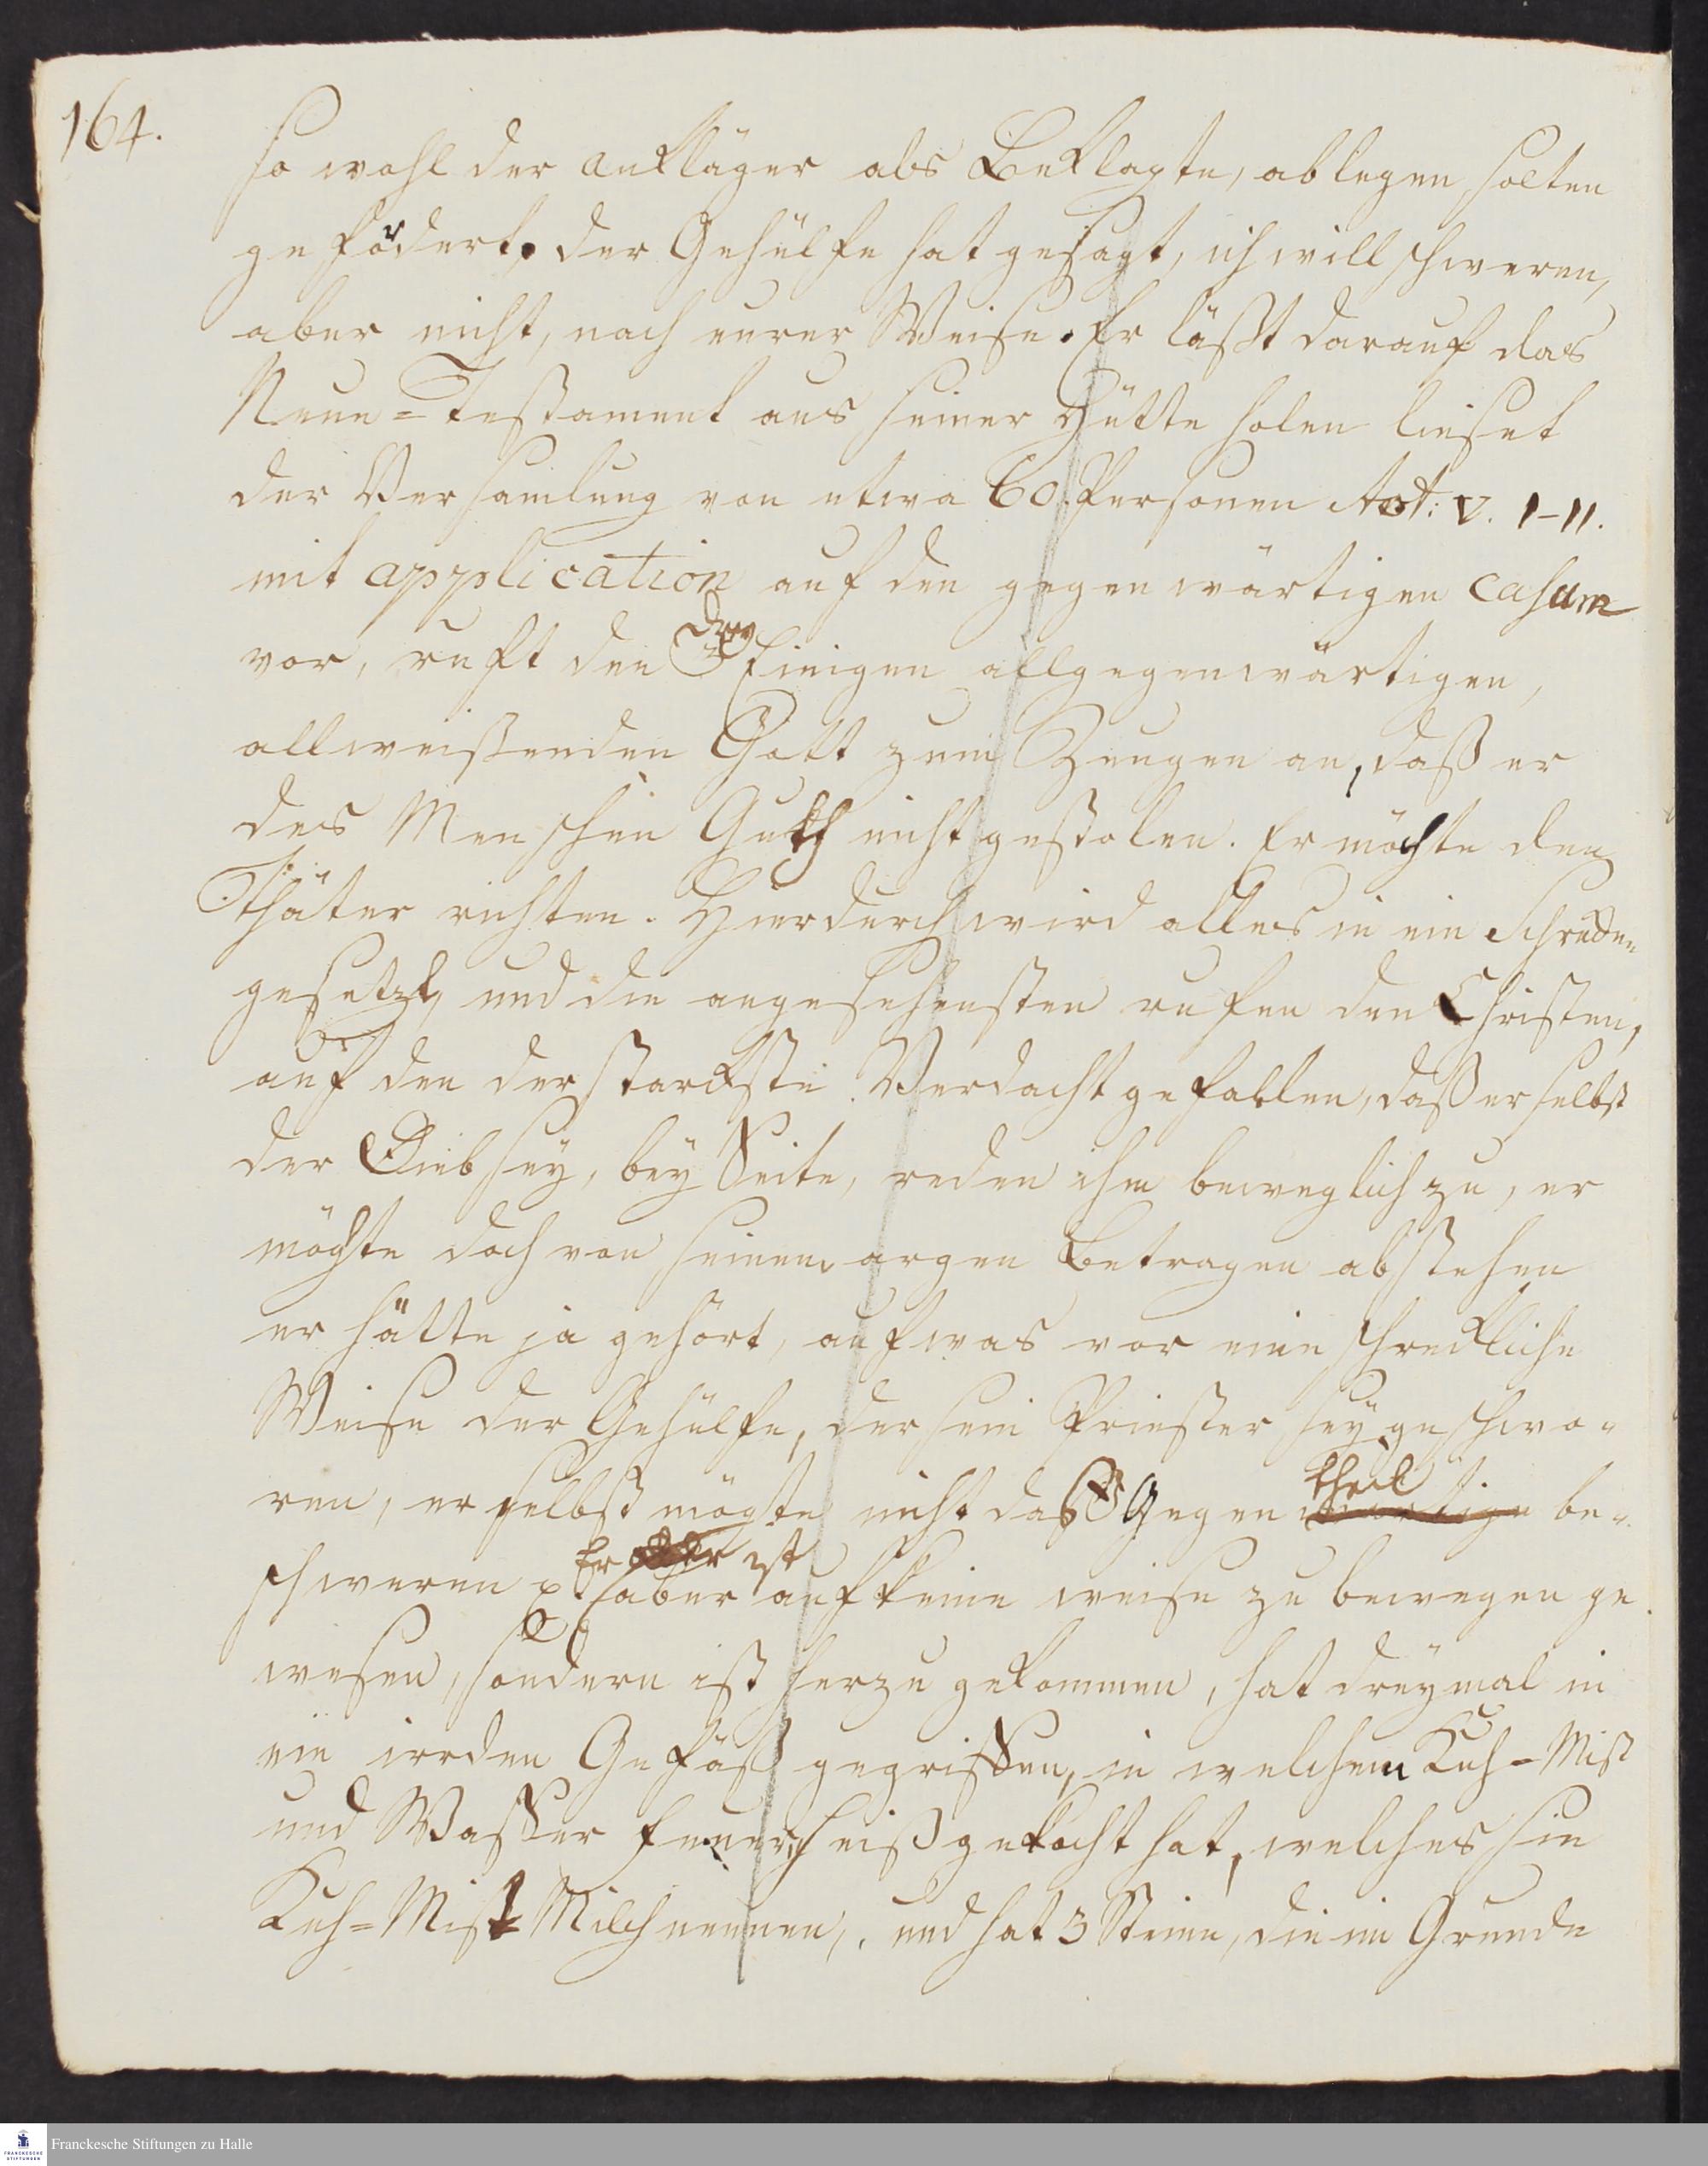 164.
so wohl der ankläger als Beklagte, ablegen solten
gefordert, der Gehülfe hat gesagt, ich will schweren,
aber nicht, nach eurer Weise. Er läßt darauf das
Neue=Testament aus seiner Hütte holen lieset
der Versamlung von etwa 60. Personen Act: V. 1-11.
mit application auf den gegenwärtigen casum
vor, ruft den drey Einigen allgegenwärtigen,
allweißenden Gott zum Zeugen an, daß er
des Menschen Guth nicht gestolen. Er möchte den
Thäter richten. Hierdurch wird alles in ein Schrecken
gesetzt, und die angesehensten rufen den Christen,
auf den der starckste Verdacht gefallen, daß er selbst
der Dieb sey, bey Seite, reden ihm beweglich zu, er
möchte doch von seinem argen Betragen abstehen
er hätte ja gehört, auf was vor eine schreckliche
Weise der Gehülfe, der sein Priester sey geschwo-
ren, er selbst mögte nicht das Gegentheil be-
schweren Er aber ist auf keine weise zu bewegen ge
wesen, sondern ist herzu gekommen, hat dreymal in
ein irrden Gefäß gegriffen, in welchem Kuh=Mist
und Waßer feuerheiß gekocht hat, welches sie
Kuh=Mist Milch nennen, und hat 3 Steine, die im Grunde
Franckesche Stiftungen zu Halle